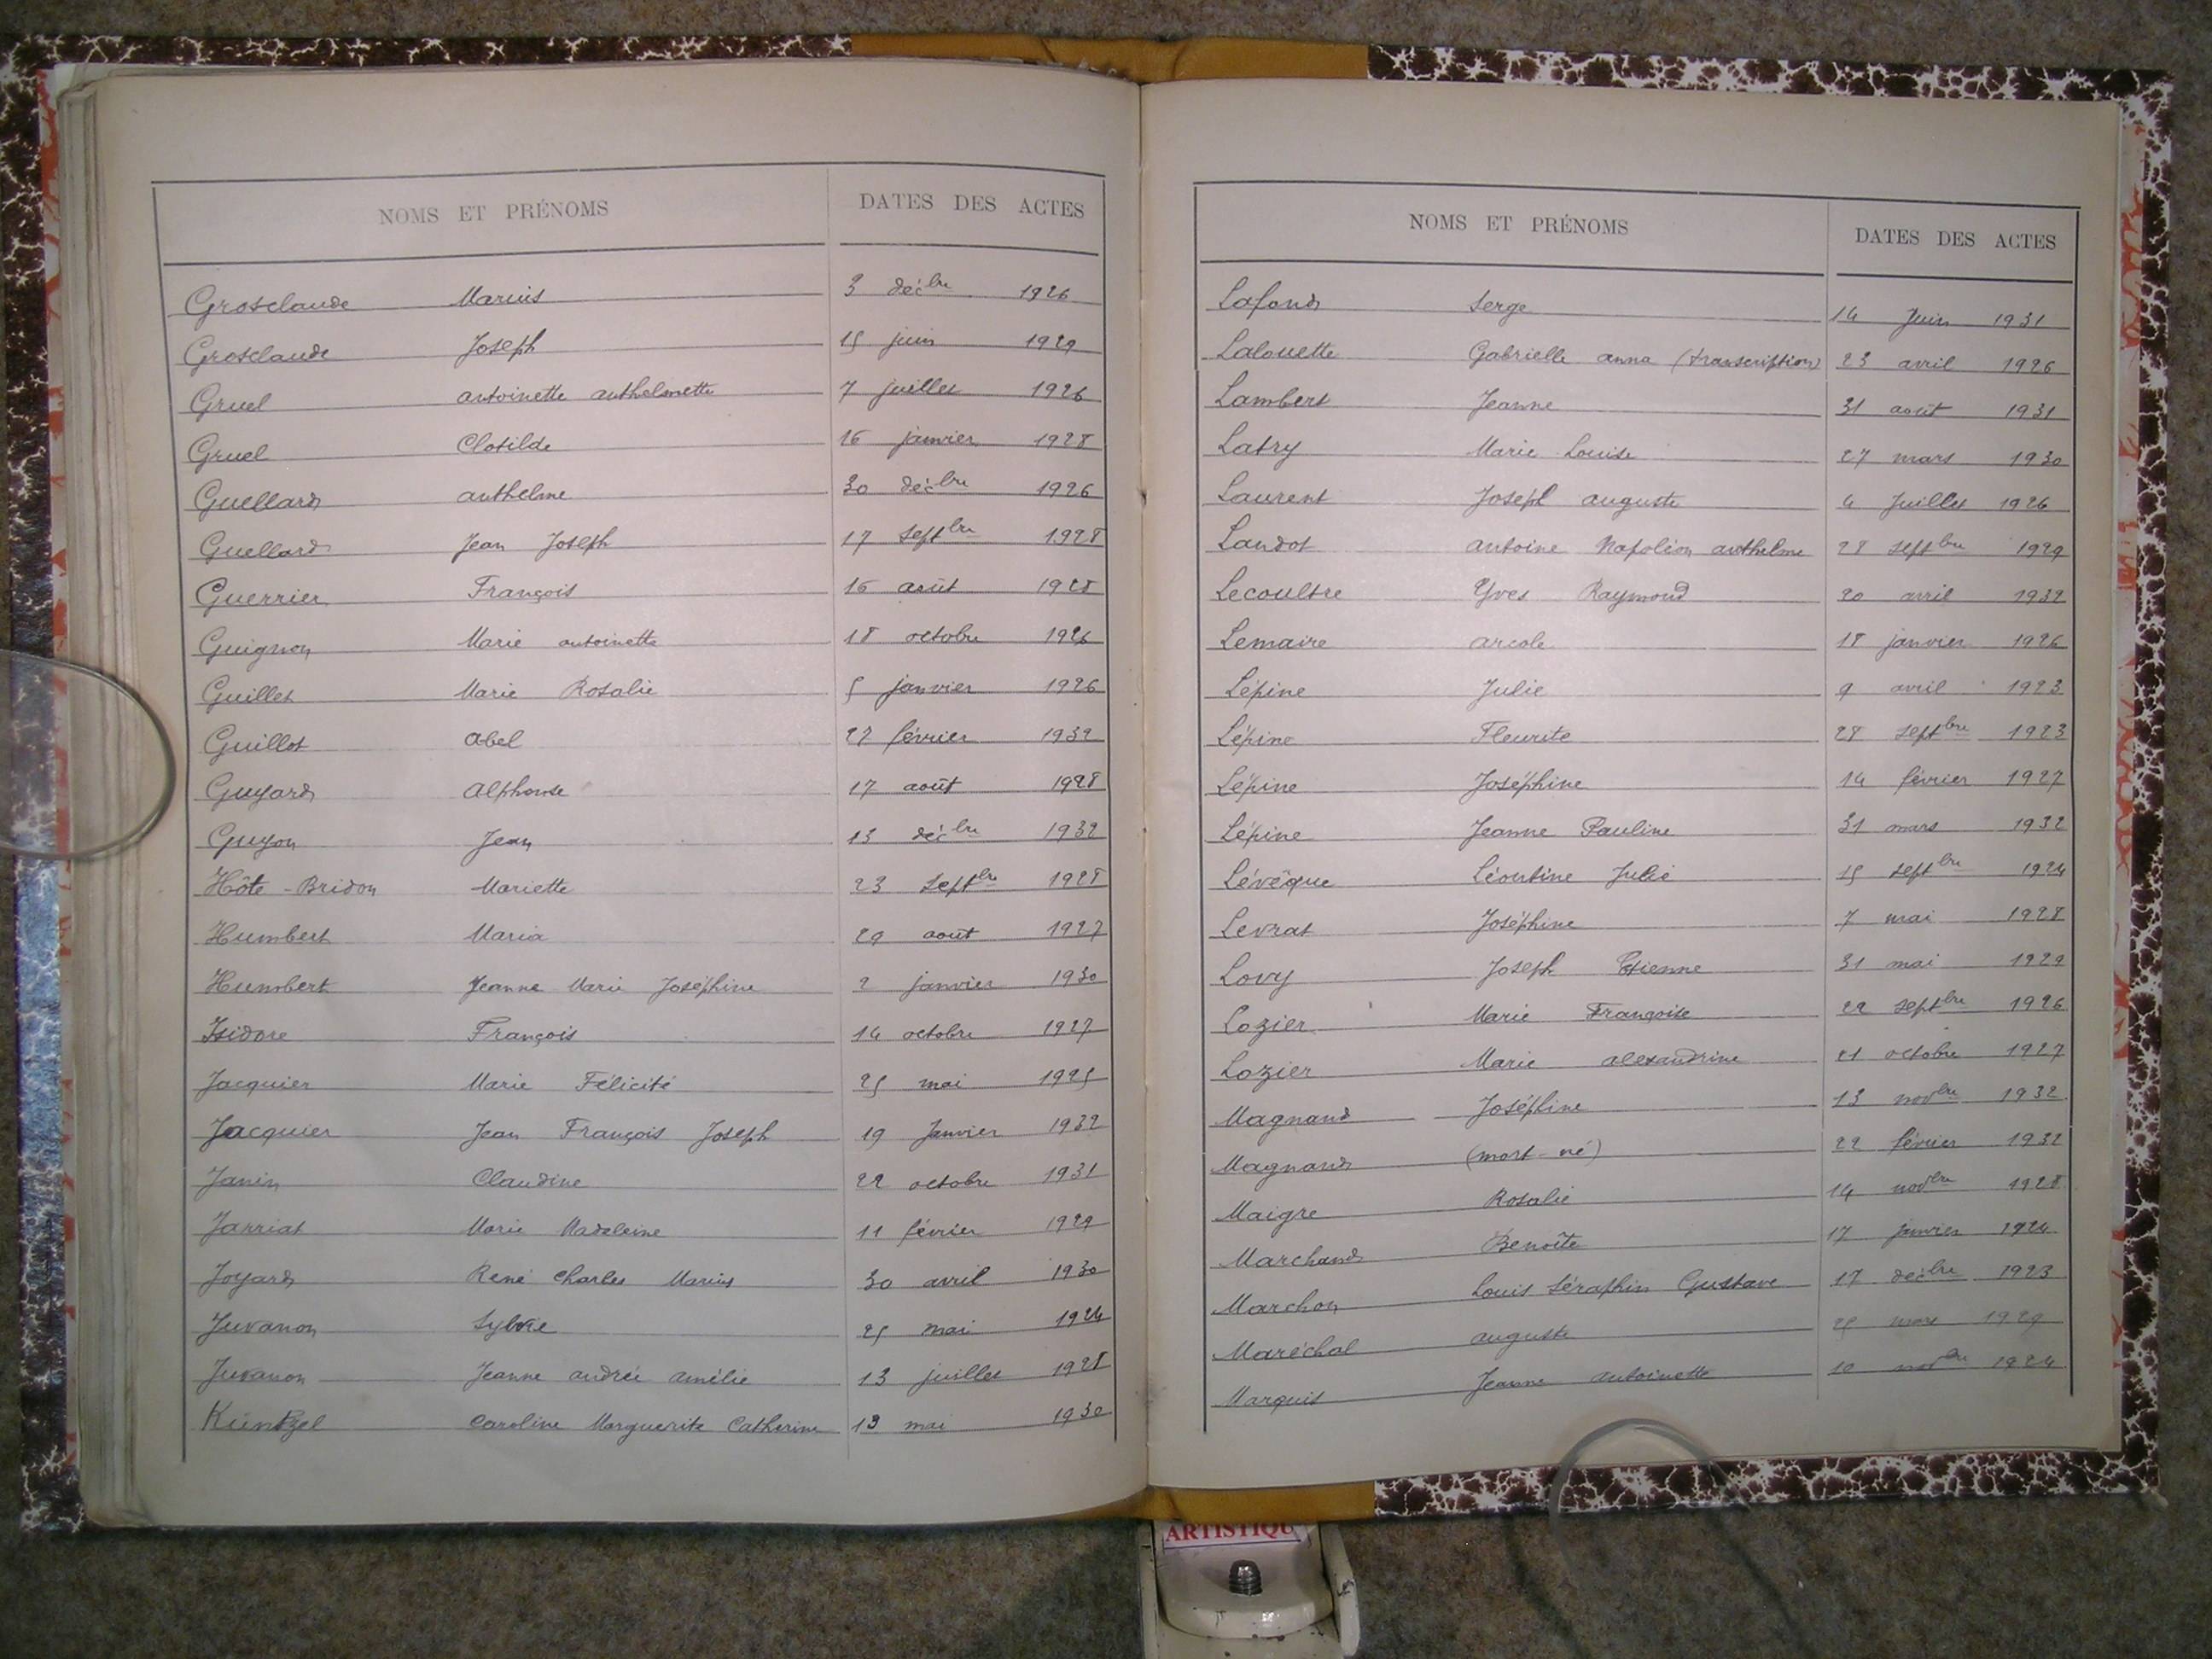 NOMS ET PRÉNOMS DATES DES ACTES
Grosclaude Marius 3 décbre 1926
Grosclaude Joseph 15 juin 1929
Gruel antoinette anthelmette 7 juillet 1926
Gruel Clotilde 16 janvier 1928
Guellard anthelme 30 décbre 1926
Guellard Jean Joseph 17 septbre 1928
Guerrier François 16 août 1928
Guignon Marie antoinette 18 octobre 1926
Guillet Marie Rosalie 5 janvier 1926
Guillot abel 22 février 1932
Guyard alphonse 17 août 1928
Guyon Jean 13 décbre 1932
Hôte-Bridon Mariette 23 septbre 1928
Humbert Maria 29 août 1927
Humbert Jeanne Marie Joséphine 2 janvier 1930
Isidore François 14 octobre 1927
Jacquier Marie Félicité 25 mai 1925
Jacquier Jean François Joseph 19 Janvier 1932
Janin Claudine 22 octobre 1931
Jarriat Marie Madeleine 11 février 1929
Joyard René Charles Marius 30 avril 1930
Juvanon Sylvie 25 mai 1924
Juvanon Jeanne andrée amélie 13 juillet 1928
Küntzel Caroline Marguerite Catherine 13 mai 1930
NOMS ET PRÉNOMS DATES DES ACTES
Lafond Serge 14 Juin 1931
Lalouette Gabrielle anna (transcription) 23 avril 1926
Lambert Jeanne 31 août 1931
Latry Marie Louise 27 mars 1930
Laurent Joseph auguste 4 Juillet 1926
Landot antoine Napoléon anthelme 28 septbre 1929
Lecoultre Yves Raymond 20 avril 1932
Lemaire arcole 18 janvier 1926
Lépine Julie 9 avril 1923
Lépine Fleurite 28 septbre 1923
Lépine Joséphine 14 février 1927
Lépine Jeanne Pauline 31 mars 1932
Lévêque Léontine Julie 15 septbre 1924
Levrat Joséphine 7 mai 1928
Lovy Joseph Etienne 31 mai 1929
Lozier Marie Françoise 22 septbre 1926
Lozier Marie alexandrine 21 octobre 1927
Magnand Joséphine 13 novbre 1932
Magnand (mort-né) 22 février 1932
Maigre Rosalie 14 novbre 1928
Marchand Benoîte 17 janvier 1924
Marchon Louis Séraphin Gustave 17 décbre 1923
Maréchal auguste 25 mars 1929
Marquis Jeanne antoinette 10 novbre 1924
ARTISTIQU